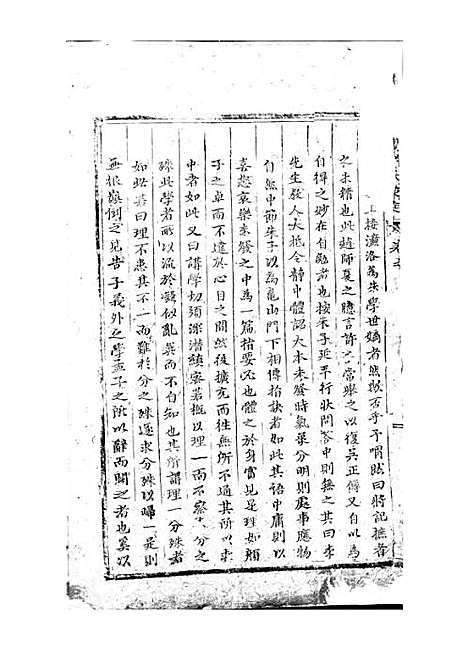 上接濂洛為朱學世嫡者然歟否乎予喟然曰將記誰者
之朱籍也此趙師夏之臆言許之嘗舉之以復吳正傳又自以為
自得之妙在自勉者也按朱子延平行狀問答中則無之其曰李
先生教人大抵令靜中體認大本未發時氣象分明則處事應物
自然中節朱子以為龜山門下相傳指訣者如此其語中庸則以
喜怒哀樂未發之中為一篇指要必也體之於身實見是理如顏
子之卓而不違於心目之間然後擴充而往無所不通其所以李
中者如此又曰講學切須深潛縝密若概以理一而不察分之
殊此學者所以流於疑似亂真而不自知也其所謂理一分殊者
如此若曰理不患其不一而難於分之殊遂求分殊以歸一是則
無根顛倒之見告子義外之學孟子之所以辭而闢之者也奚以